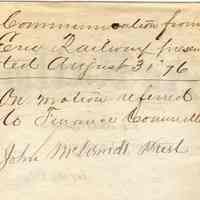 Communication from
Erie Railway presen
ted August 31st 76
On motion referred
to Finance Committee
John